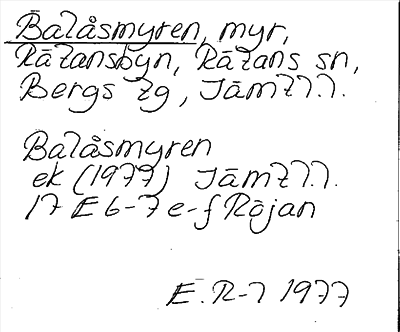 Balåsmyren, myr,
Rätansbyn, Rätans sn,
Bergs tg, Jämtl.
Balåsmyren
ek (1977) Jämtl.
17 E 6-7 e-f Röjan
E. R-l 1977